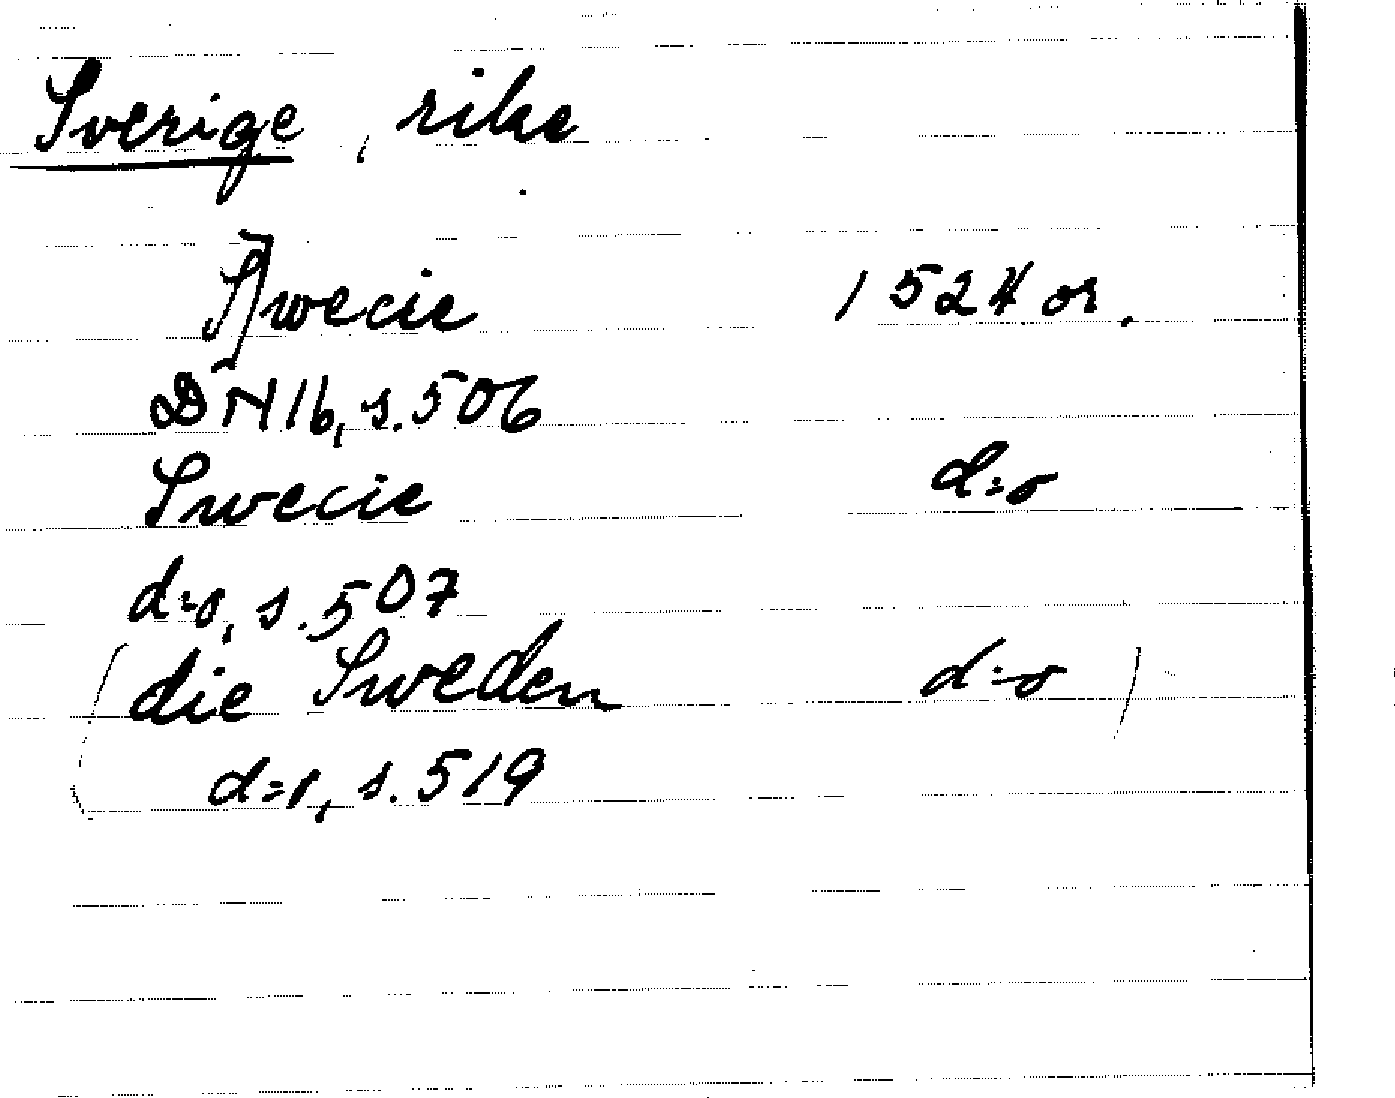 Sverige, rike
S]wecie 1524 or.
DN 16, s. 506
Swecie d:o
d:o, s. 507
(die Sweden d:o)
d:o, s. 519